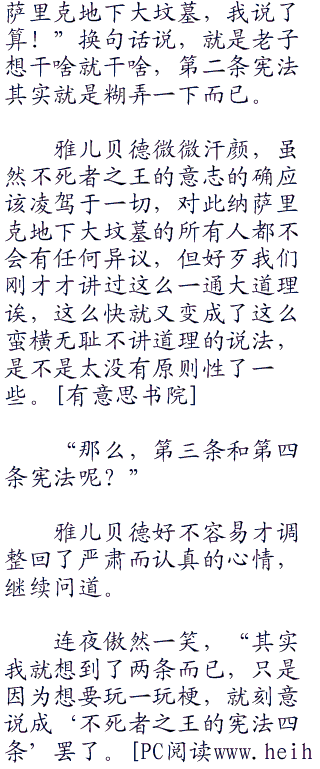 萨里克地下大坟墓，我说了
算！”换句话说，就是老子
想干啥就干啥，第二条宪法
其实就是糊弄一下而已。
雅儿贝德微微汗颜，虽
然不死者之王的意志的确应
该凌驾于一切，对此纳萨里
克地下大坟墓的所有人都不
会有任何异议，但好歹我们
刚才才讲过这么一通大道理
诶，这么快就又变成了这么
蛮横无耻不讲道理的说法，
是不是太没有原则性了一
些。[有意思书院]
“那么，第三条和第四
条宪法呢？”
雅儿贝德好不容易才调
整回了严肃而认真的心情，
继续问道。
连夜傲然一笑，“其实
我就想到了两条而已，只是
因为想要玩一玩梗，就刻意
说成‘不死者之王的宪法四
条’罢了。[PC阅读www.heih